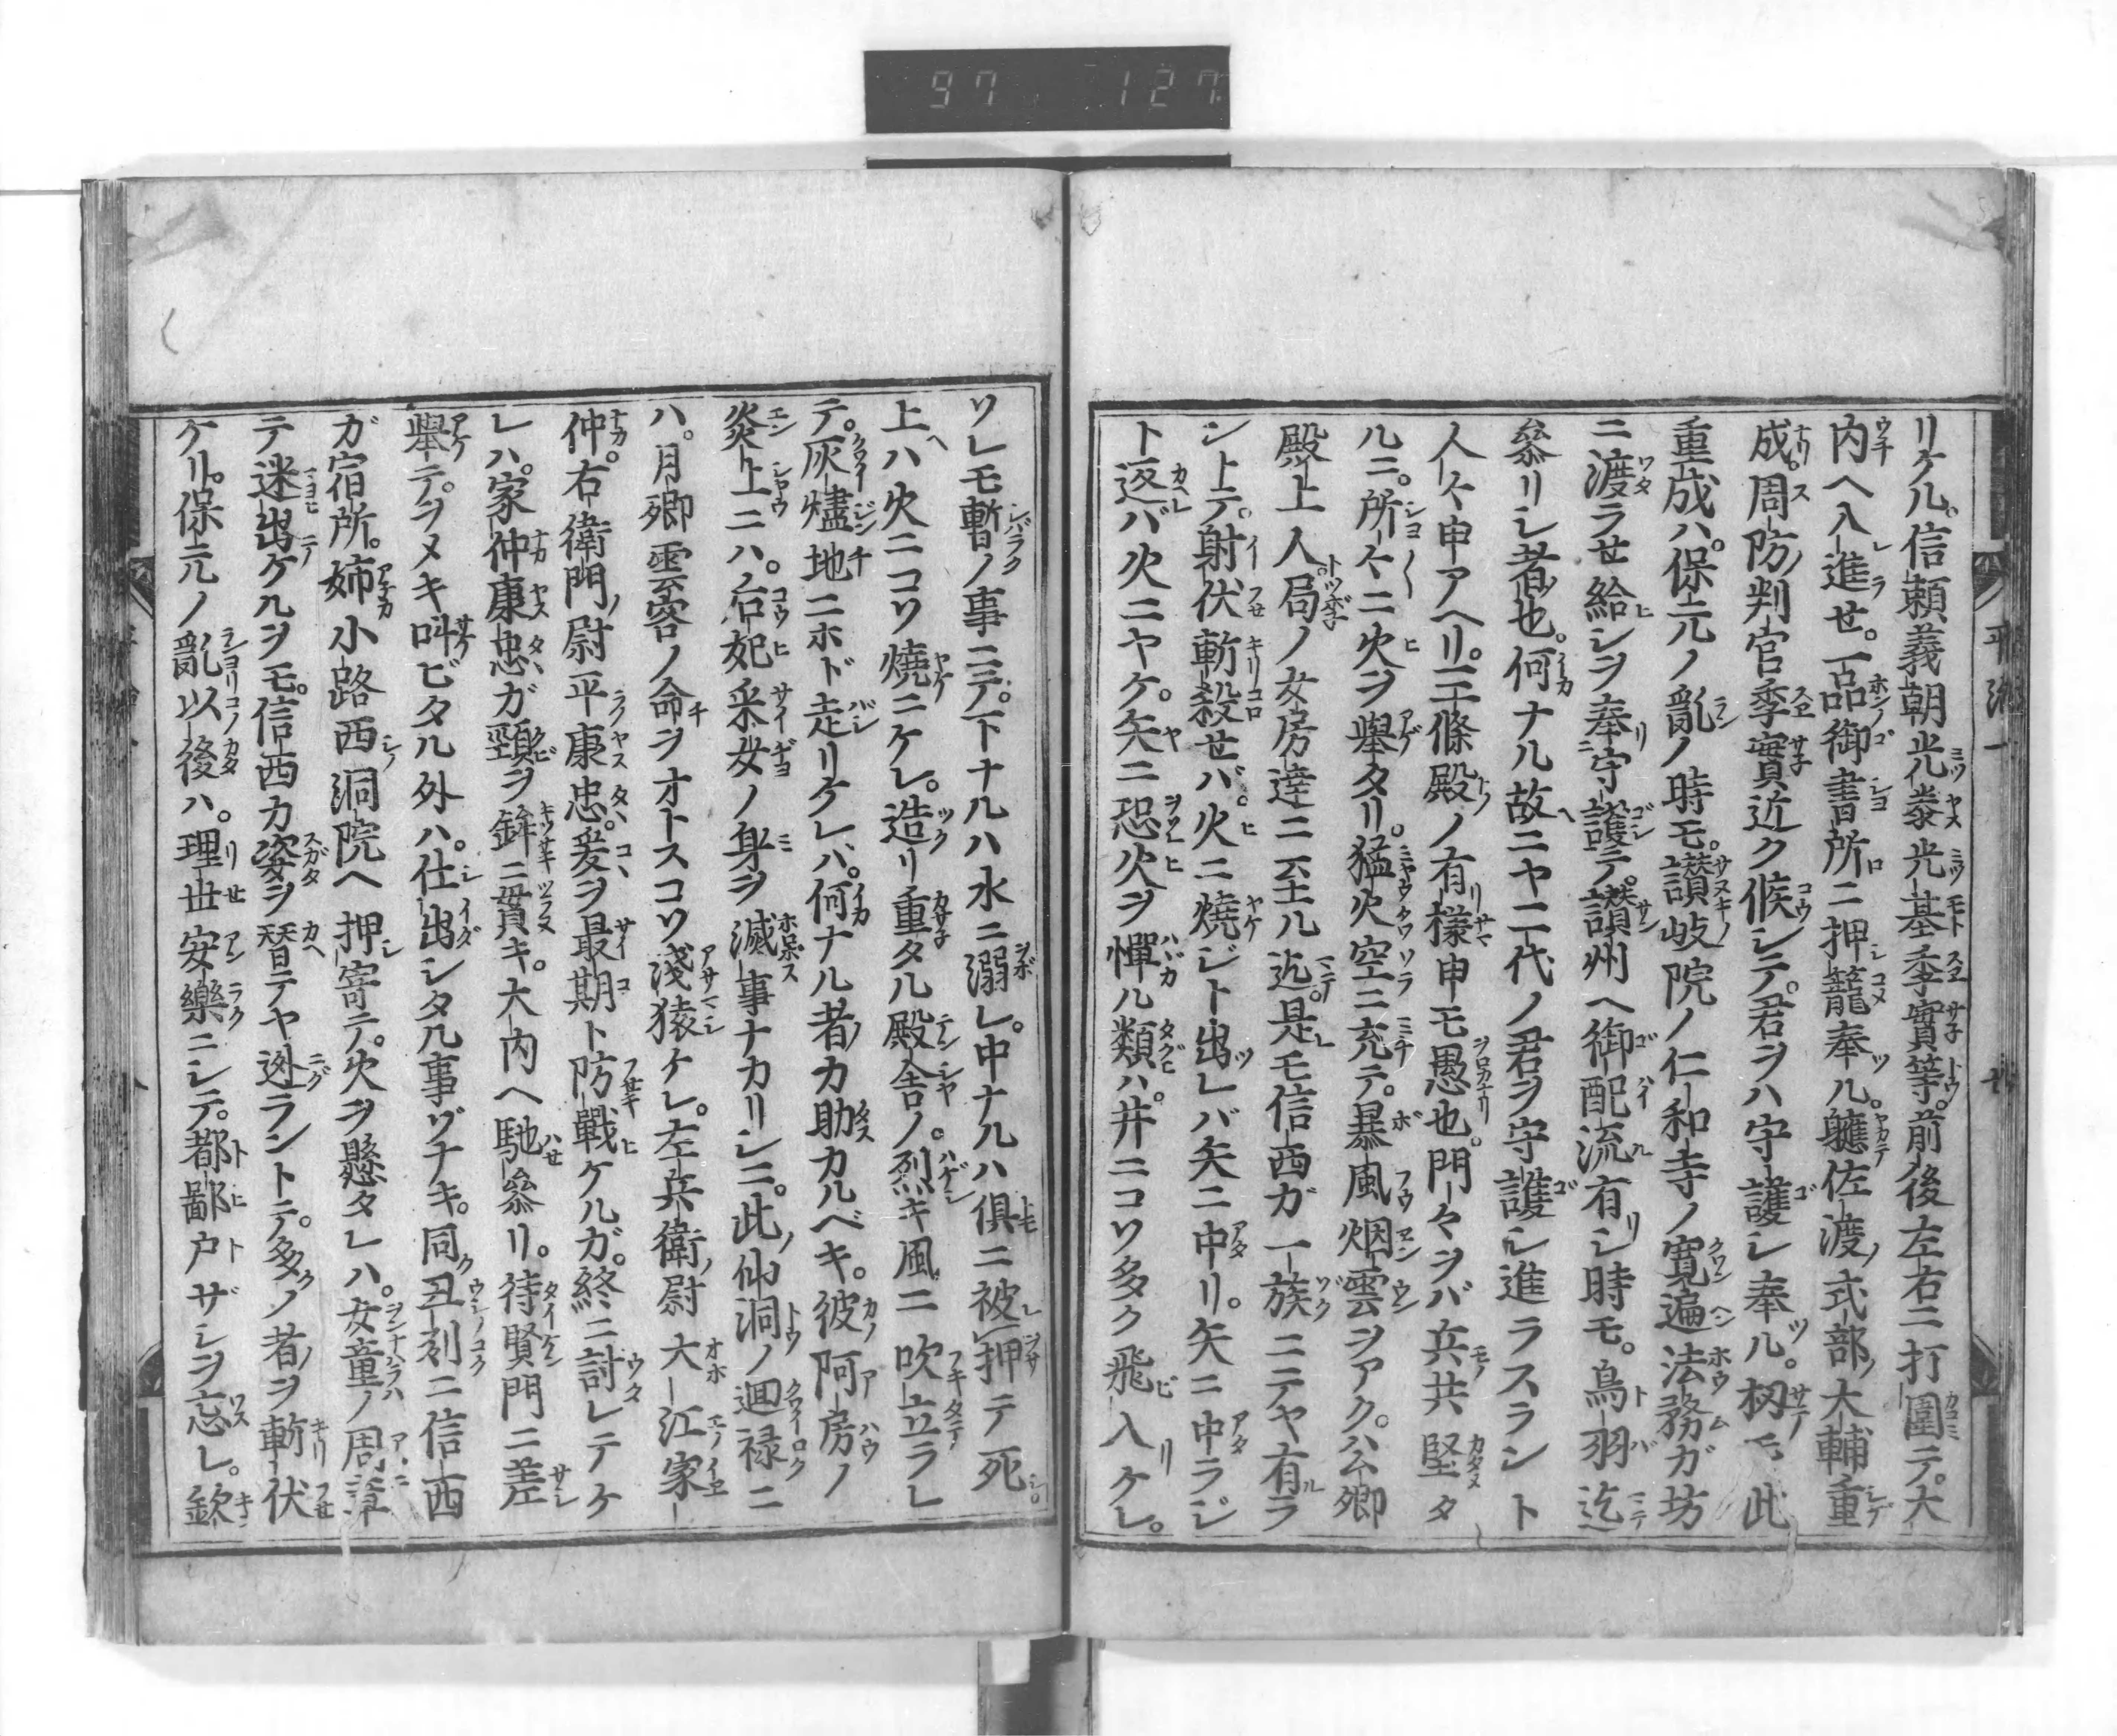 97 127
リケル。信頼義朝光泰光基季實等。前後左右ニ打圍テ。大
内ヘ入進セ。一品御書所ニ押籠奉ル。軈佐渡式部大輔重
成。周防判官季實近ク候シテ。君ヲハ守護シ奉ル。扨モ此
重成ハ。保元ノ亂ノ時モ。讃岐院ノ仁和寺ノ寛遍法務ガ坊
ニ渡ラせ給シヲ奉守護テ。讃州ヘ御配流有シ時モ。鳥羽迄
參リシ者也。何ナル故ニヤ二代ノ君ヲ守護シ進ラスラント
人々申アヘリ。三條殿ノ有樣申モ愚也。門々ヲバ兵共堅タ
ルニ。所々ニ火ヲ擧タリ。猛火空ニ充テ。暴風烟雲ヲアク。公卿
殿上人局ノ女房達ニ至ル迄。是モ信西ガ一族ニテヤ有ラ
ントテ。射伏斬殺せバ。火ニ燒ジト出レバ矢ニ中リ。矢ニ中ラジ
ト返バ火ニヤケ。矢ニ恐火ヲ憚ル類ハ。井ニコソ多ク飛入ケレ。
ソレモ暫ノ事ニテ。下ナルハ水ニ溺レ。中ナルハ倶ニ被押テ死
上ハ火ニコソ燒ニケレ。造リ重タル殿舎ノ。烈キ風ニ吹立ラレ
テ。灰燼地ニホド走リケレバ。何ナル者カ助カルベキ。彼阿房ノ
炎上ニハ。后妃采女ノ身ヲ滅事ナカリシニ。此仙洞ノ廻禄ニ
ハ。月卿雲客ノ命ヲオトスコソ淺猿ケレ。左兵衛尉大江家
仲。右衛門尉平康忠。爰ヲ最期ト防戰ケルガ。終ニ討レテケ
レハ。家仲康忠ガ頸ヲ鉾ニ貫キ。大内ヘ馳參リ。待賢門ニ差
擧テ。ヲメキ叫ビタル外ハ。仕出シタル事ゾナキ。同丑刻ニ信西
ガ宿所。姉小路西洞院ヘ押寄テ。火ヲ懸タレハ。女童ノ周章
テ迷出ケルヲモ。信西カ姿ヲ替テヤ迯ラントテ。多ノ者ヲ斬伏
ケリ。保元ノ亂以後ハ。理世安樂ニシテ。都鄙戸ザシヲ忘レ。歓